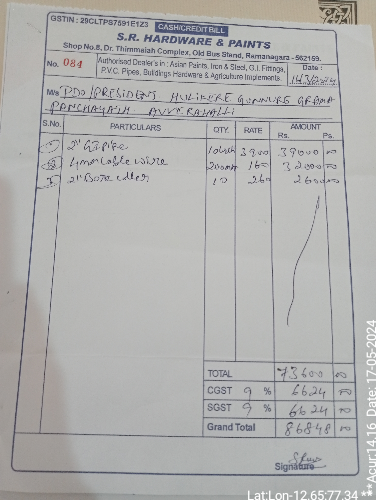 GSTIN : 29CLTPS7591E1Z3 CASH/CREDIT BILL
S.R. HARDWARE & PAINTS
Shop No.8, Dr. Thimmaiah Complex, Old Bus Stand, Ramanagara - 562159.
No. 084 Authorised Dealer's in : Asian Paints, Iron & Steel, G.I. Fittings, P.V.C. Pipes, Buildings Hardware & Agriculture Implements. Date :
M/s PDO/PRESIDENT HULIKERE GUNNURE GRAMA
PANCHAYATH AVVERAHALLI
S.No. PARTICULARS QTY. RATE AMOUNT
Rs. Ps.
1 2" GI Pipe 3900 39000 00
2 4mm Cable wire 160 32000 00
3 2" 10 260 2600 00
TOTAL 73600 00
CGST 9 % 6624 00
SGST 9 % 6624 00
Grand Total 86848 00
Signature
Lat:Lon-12.65:77.34
**Acur:14.16 Date: 17-05-2024